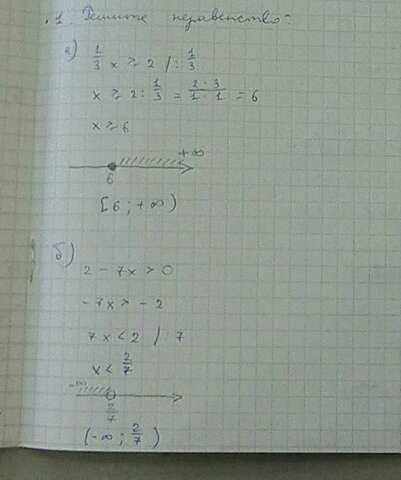 1. Решите неравенство:
а) 1/3 x ⩾ 2 / : 1/3
x ⩾ 2 : 1/3 = 2 · 3 / 1 · 1 = 6
x ⩾ 6
+∞
6
[6 ; +∞)
б)
2 - 7x > 0
-7x > -2
7x < 2 / 7
x < 2/7
-∞
2/7
(-∞ ; 2/7)